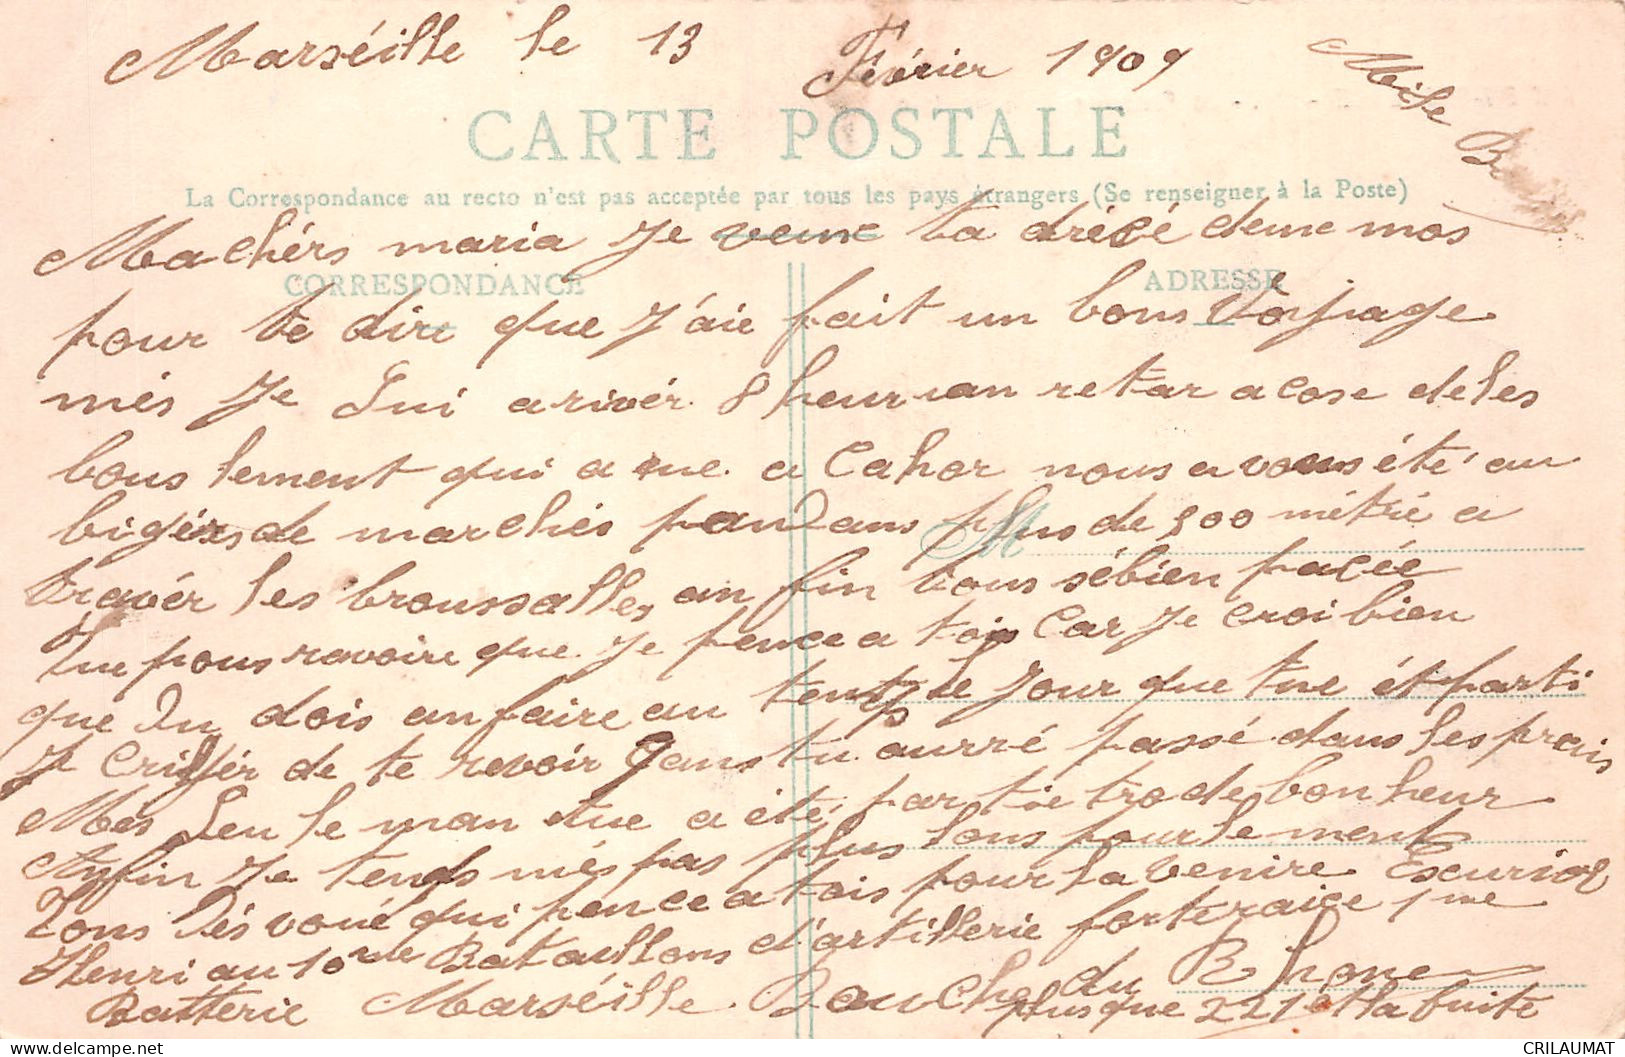 Marséille le 13 Février 1909
Mlle
CARTE POSTALE
La Correspondance au recto n'est pas acceptée par tous les pays étrangers (Se renseigner à la Poste)
Ma chérs maria Je veux ta drécé deme mos
CORRESPONDANCE
ADRESSE
pour te dire que J'aie fait un bons Voyage
més Je Sui arivér 8 heur an retar a cose de les
bous lement qui a ue a Cahor nous avons été au
bigérs de marchés pandans plus de 500 métré a
travér les broussalles an fin tous sébien pacée
tue pous ravoire que Je pence a tois Car Je croi bien
que Du dois anfaire au temps le Jour que tue ét parti
J de te revoir Jans tu aurré passé dans les prais
Mes Seu le man tue a été partie tro de bonheur
Anfin Je tends més pas plus lons pour le ment
Tons Dés voué qui pence a tois pour la venire Escuriol
Henri au 10me Bataillons d'artillerie forteraice 1me
Batterie Marséille Bouche du Rhone
plus que 221 et la fuite
M
CRILAUMAT